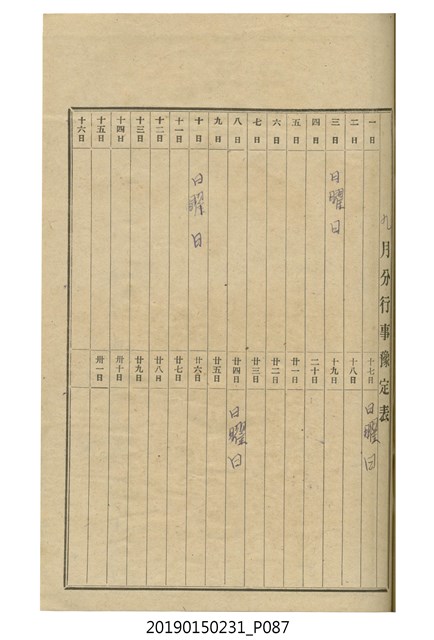 九月分行事豫定表
一日
二日
三日 日曜日
四日
五日
六日
七日
八日
九日
十日 日曜日
十一日
十二日
十三日
十四日
十五日
十六日
十七日 日曜日
十八日
十九日
二十日
廿一日
廿二日
廿三日
廿四日 日曜日
廿五日
廿六日
廿七日
廿八日
廿九日
卅十日
卅一日
20190150231_P087